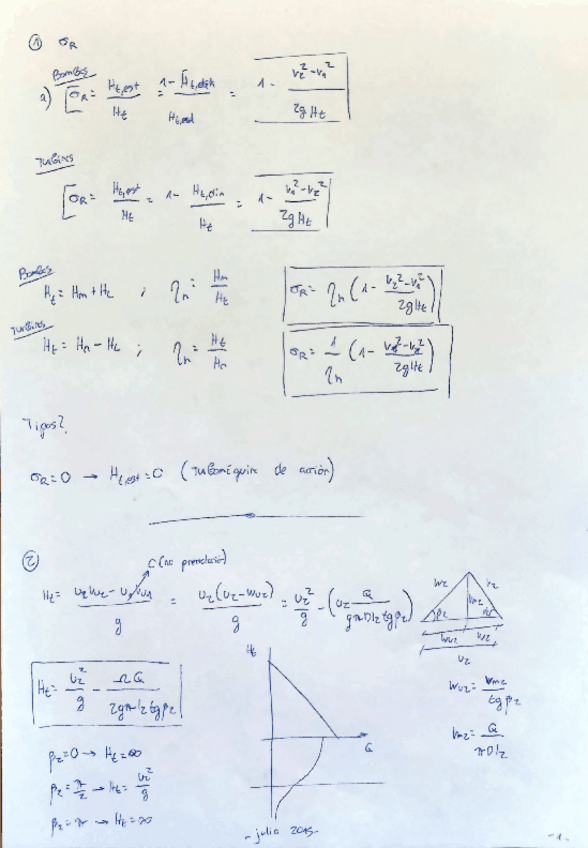 ① σR
Bombas
a) σR = Ht,est / Ht = 1 - Ht,din / Ht,est = 1 - (v2² - v1²) / 2g Ht
Turbinas
σR = Ht,est / Ht = 1 - Ht,din / Ht = 1 - (v1² - v2²) / 2g Ht
Bombas
Ht = Hm + HL ; ηh = Hm / Ht
σR = ηh (1 - (v2² - v1²) / 2g Ht)
Turbinas
Ht = Hn - HL ; ηh = Ht / Hn
σR = 1/ηh (1 - (v1² - v2²) / 2g Ht)
Tipos?
σR = 0 → Ht,est = 0 (Turbomáquina de acción)
②
0 (no prerrotación)
Ht = (u2 vu2 - u1 vu1) / g = u2 (u2 - wu2) / g = u2² / g - (u2 Q / gπD b2 tgβ2)
w2 v2
β2 vm2
wu2 vu2
u2
Ht = u2² / g - ΩQ / 2gπ b2 tgβ2
Ht
Q
wu2 = vm2 / tgβ2
vm2 = Q / πD b2
β2 = 0 → Ht = ∞
β2 = π/2 → Ht = u2² / g
β2 = π → Ht = ∞
- julio 2015 -
- 1 -